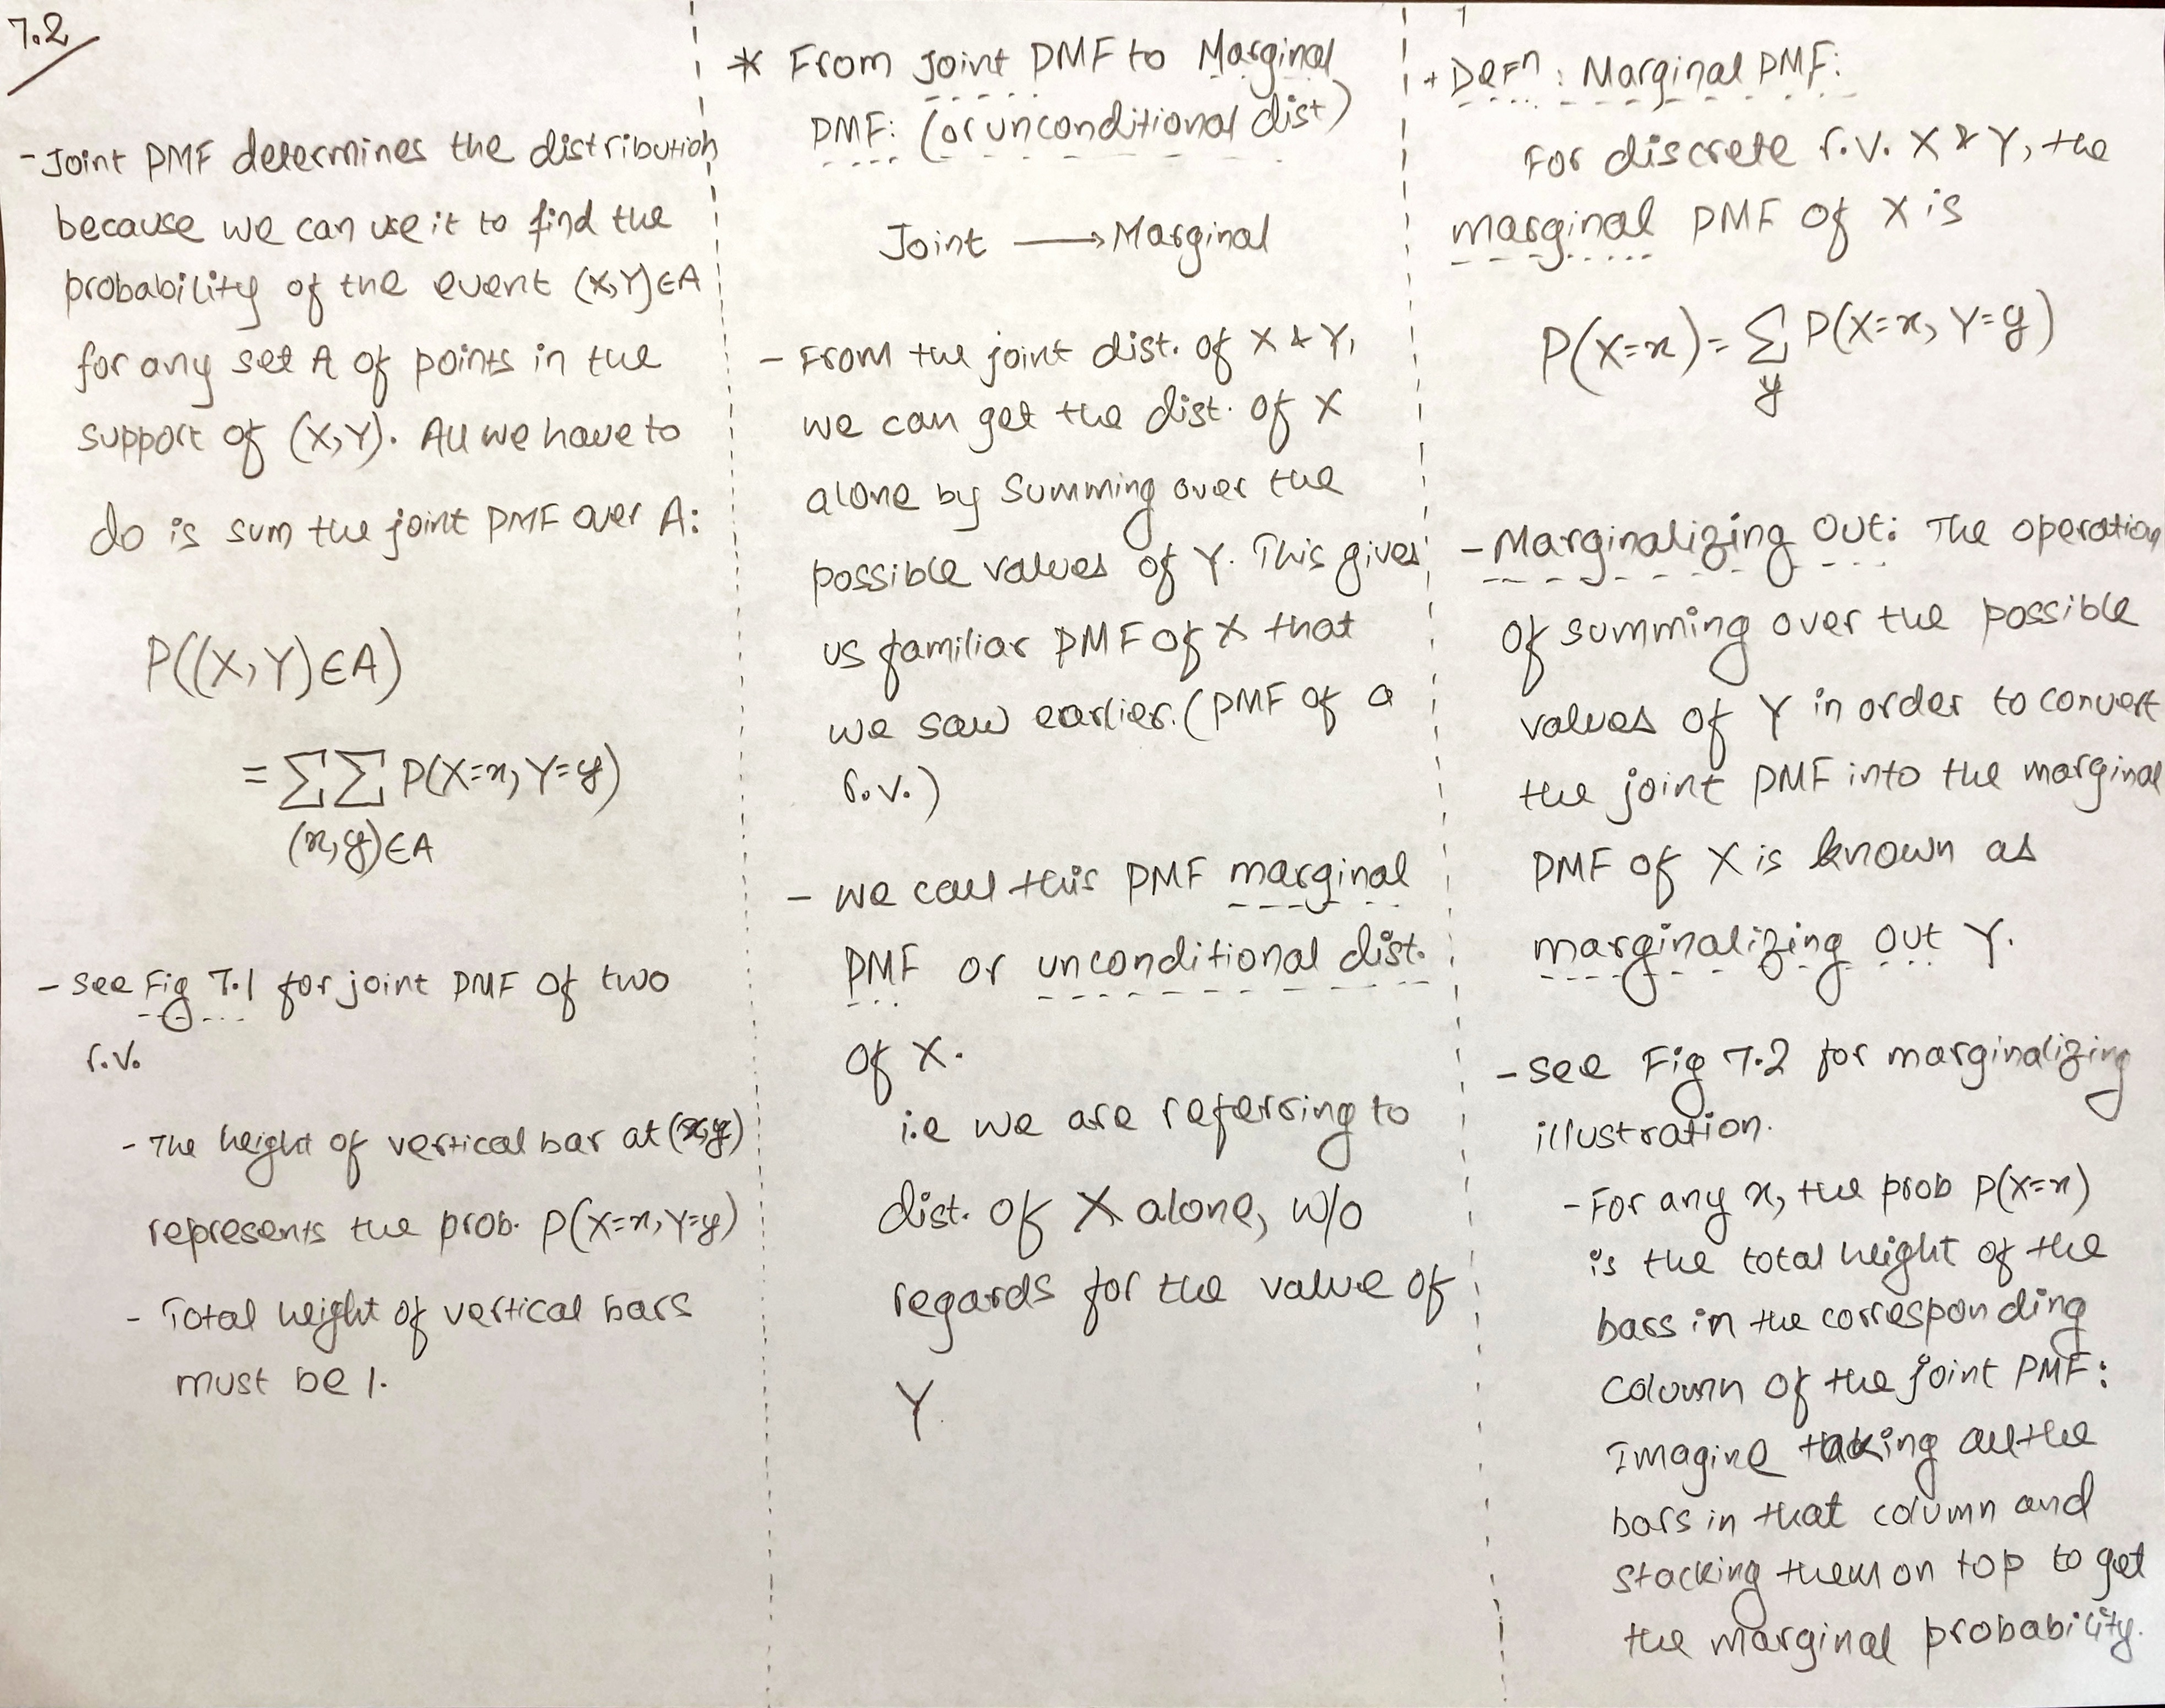 7.2
- Joint PMF determines the distribution
because we can use it to find the
probability of the event (X,Y)∈A
for any set A of points in the
support of (X,Y). All we have to
do is sum the joint PMF over A:
P((X,Y)∈A)
= ∑∑ P(X=x, Y=y)
(x,y)∈A
- see Fig 7.1 for joint PMF of two
r.v.
- The height of vertical bar at (x,y)
represents the prob. P(X=x, Y=y)
- Total height of vertical bars
must be 1.
* From Joint PMF to Marginal
PMF: (or unconditional dist)
Joint → Marginal
- From the joint dist. of X & Y,
we can get the dist. of X
alone by summing over the
possible values of Y. This gives
us familiar PMF of X that
we saw earlier. (PMF of a
r.v.)
- we call this PMF marginal
PMF or unconditional dist.
of X.
i.e we are referring to
dist. of X alone, w/o
regards for the value of
Y
+ Defⁿ: Marginal PMF:
For discrete r.v. X & Y, the
marginal PMF of X is
P(X=x) = ∑ P(X=x, Y=y)
y
- Marginalizing out: The operation
of summing over the possible
values of Y in order to convert
the joint PMF into the marginal
PMF of X is known as
marginalizing out Y.
- see Fig 7.2 for marginalizing
illustration.
- For any x, the prob P(X=x)
is the total height of the
bars in the corresponding
column of the joint PMF:
Imagine taking all the
bars in that column and
stacking them on top to get
the marginal probability.